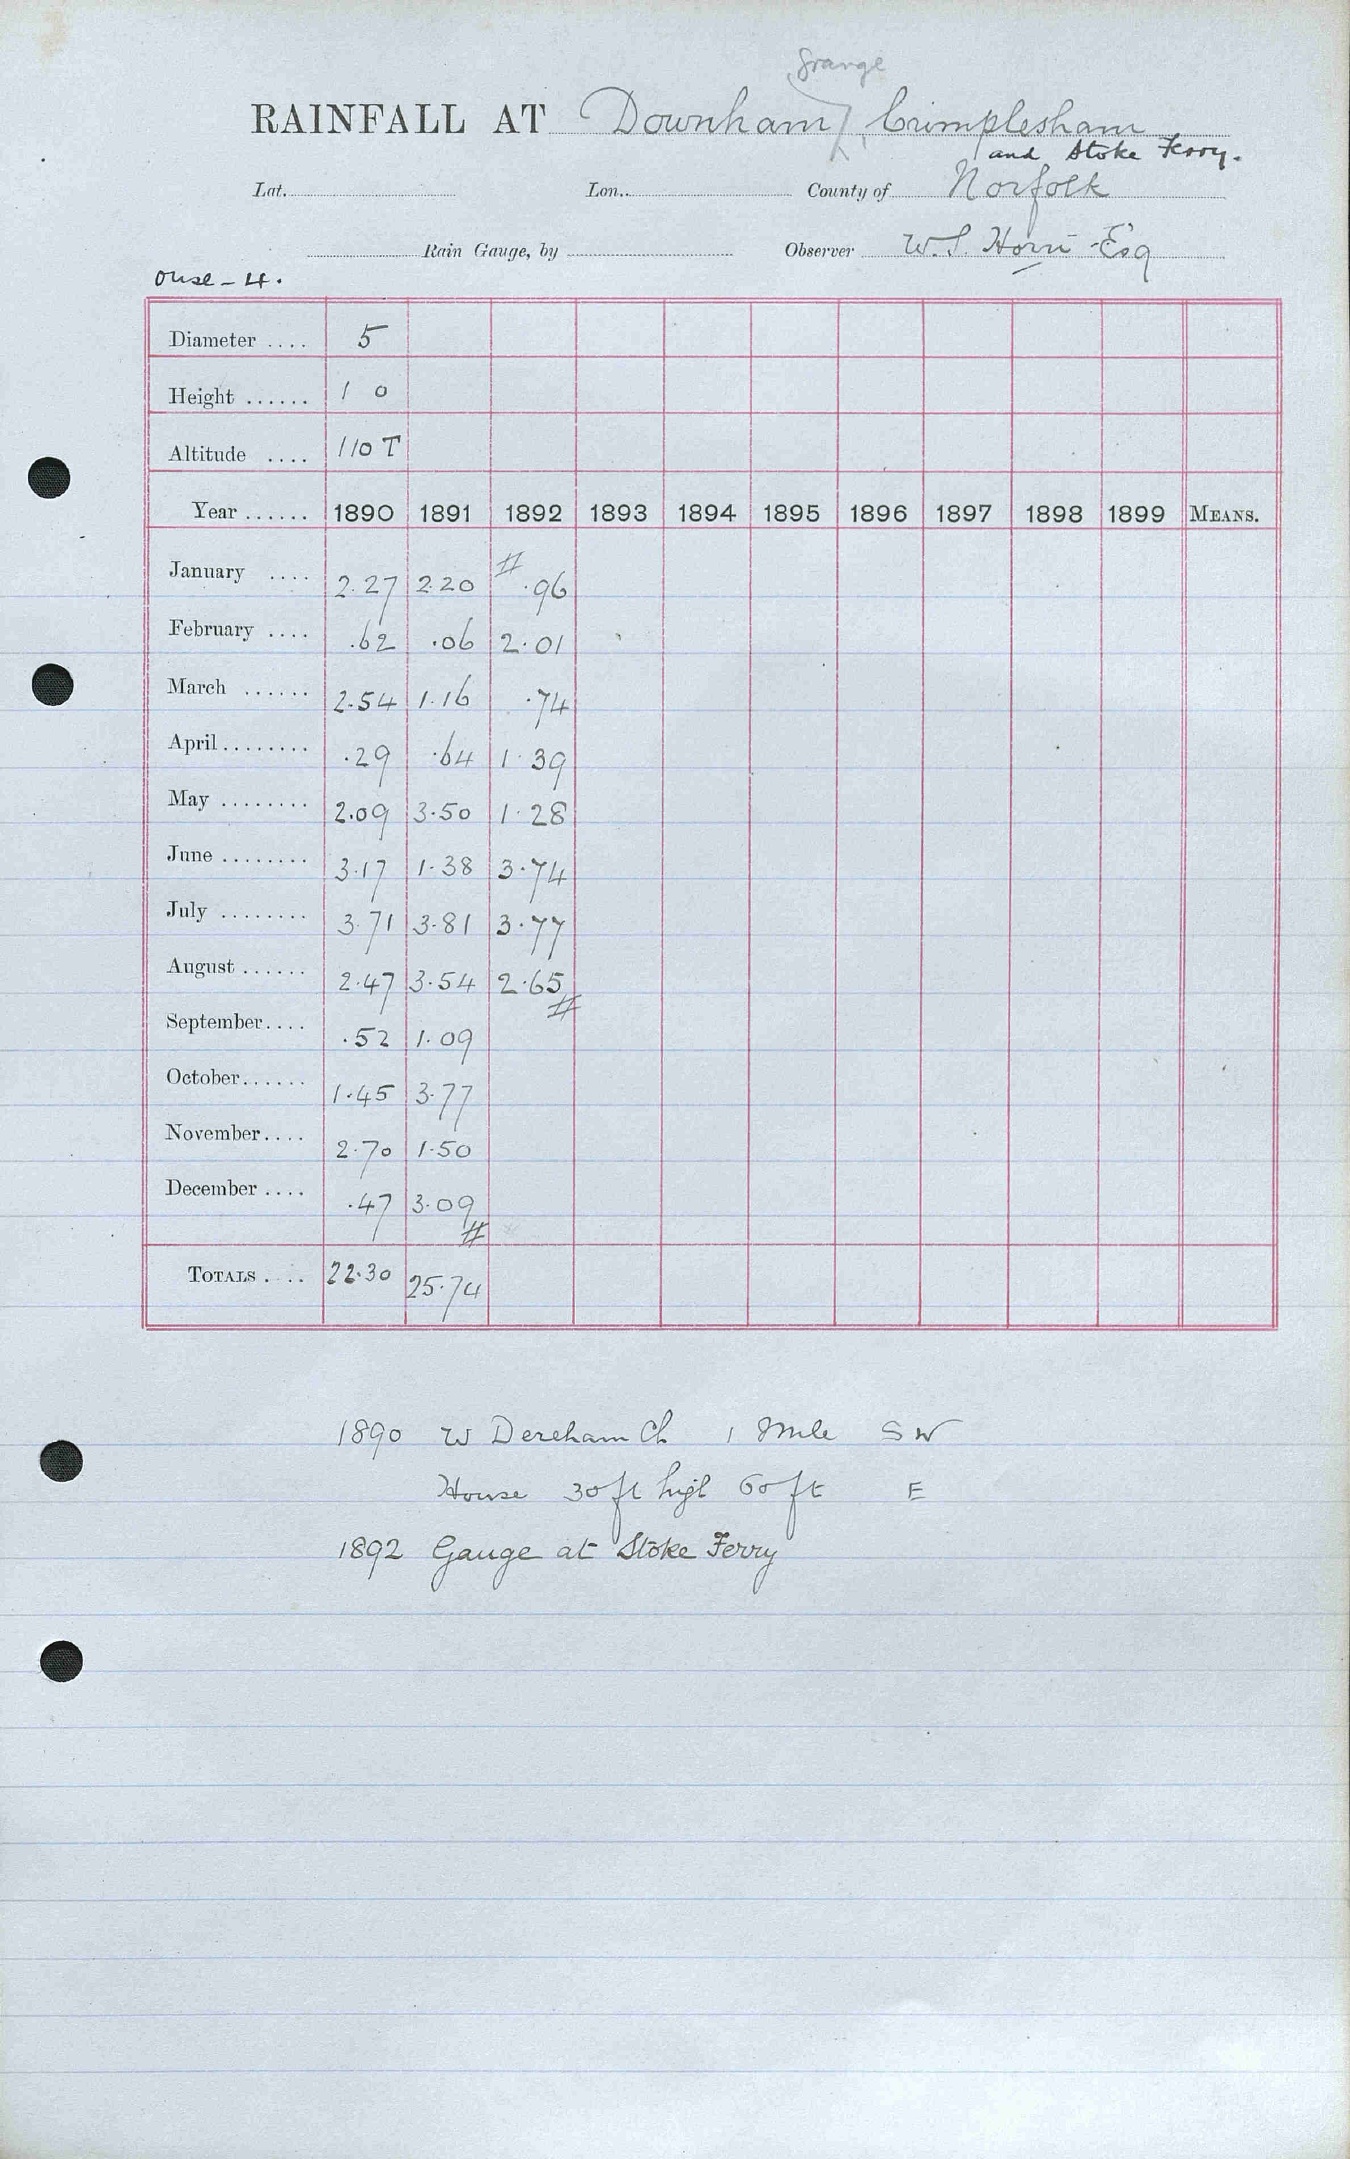 Grange
RAINFALL AT Downham, Crimplesham
and Stoke Ferry.
Lat. Lon. County of Norfolk
Rain Gauge, by Observer W. S. Esq
Ouse - 4.
Diameter .... 5
Height ...... 1 0
Altitude .... 110 T
Year ...... 1890 1891 1892 1893 1894 1895 1896 1897 1898 1899 MEANS.
January .... 2.27 2.20 # .96
February .... .62 .06 2.01
March ...... 2.54 1.16 .74
April ........ .29 .64 1.39
May ........ 2.09 3.50 1.28
June ........ 3.17 1.38 3.74
July ........ 3.71 3.81 3.77
August ...... 2.47 3.54 2.65 #
September .... .52 1.09
October ...... 1.45 3.77
November .... 2.70 1.50
December .... .47 3.09 #
TOTALS .... 22.30 25.74
1890 W Dereham Ch 1 Mile SW
House 30 ft high 60 ft E
1892 Gauge at Stoke Ferry